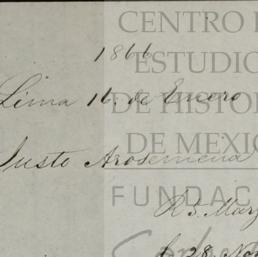 1866
Lima 16. de Enero
Justo Arosemena
R 5. Marz
28 Nov
CENTRO
ESTUDIO
DE HISTOR
DE MEXI
FUNDAC